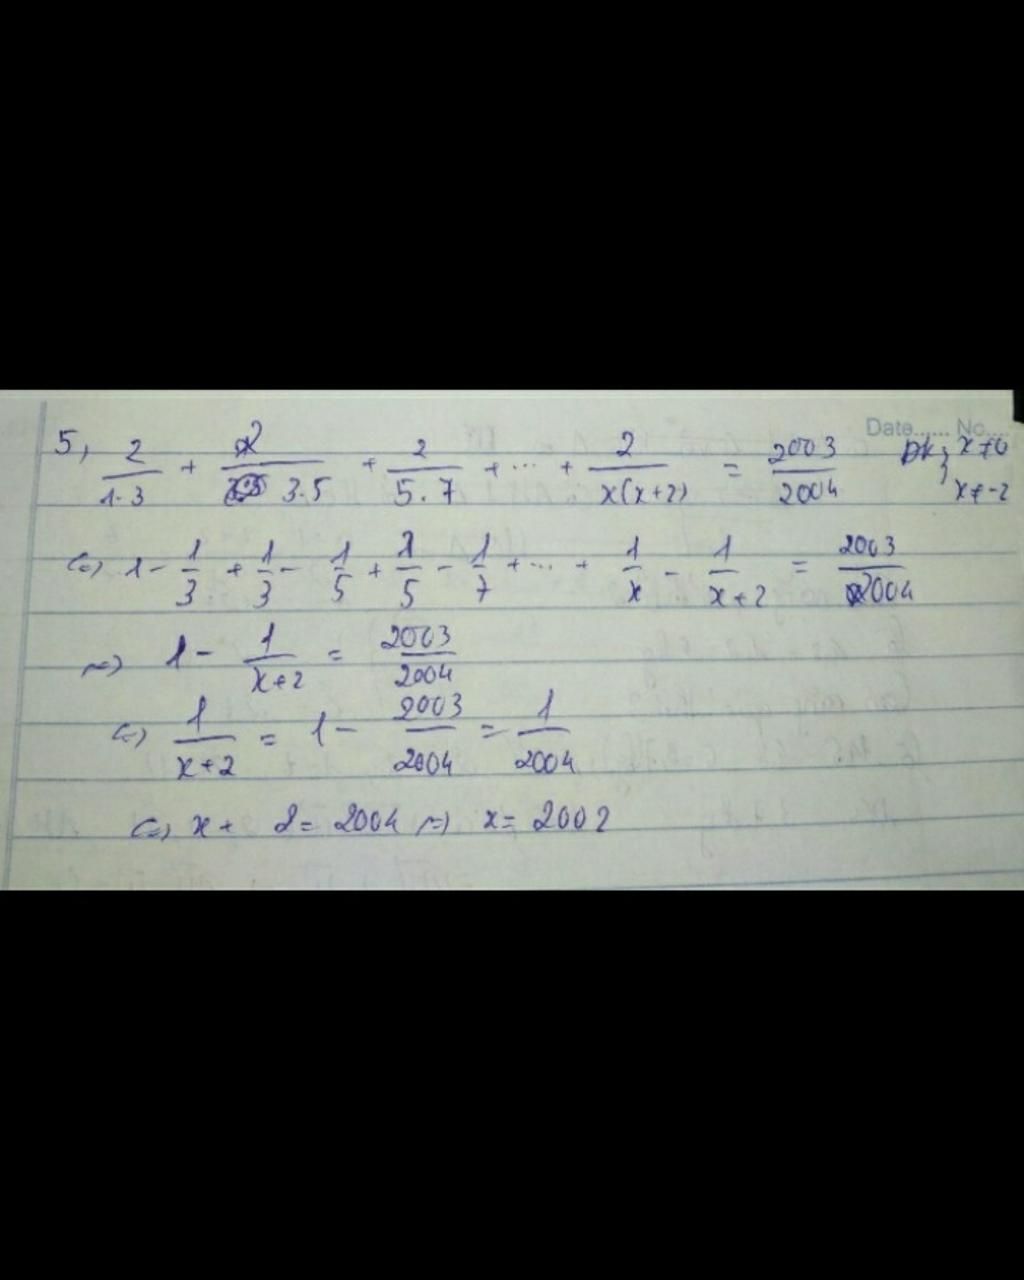 Date...... No....
5, 2/1·3 + 2/3.5 + 2/5.7 + ... + 2/x(x+2) = 2003/2004 ĐK; x≠0 x≠-2
<=> 1 - 1/3 + 1/3 - 1/5 + 1/5 - 1/7 + ... + 1/x - 1/x+2 = 2003/2004
=> 1 - 1/x+2 = 2003/2004
<=> 1/x+2 = 1 - 2003/2004 = 1/2004
<=> x + 2 = 2004 => x = 2002